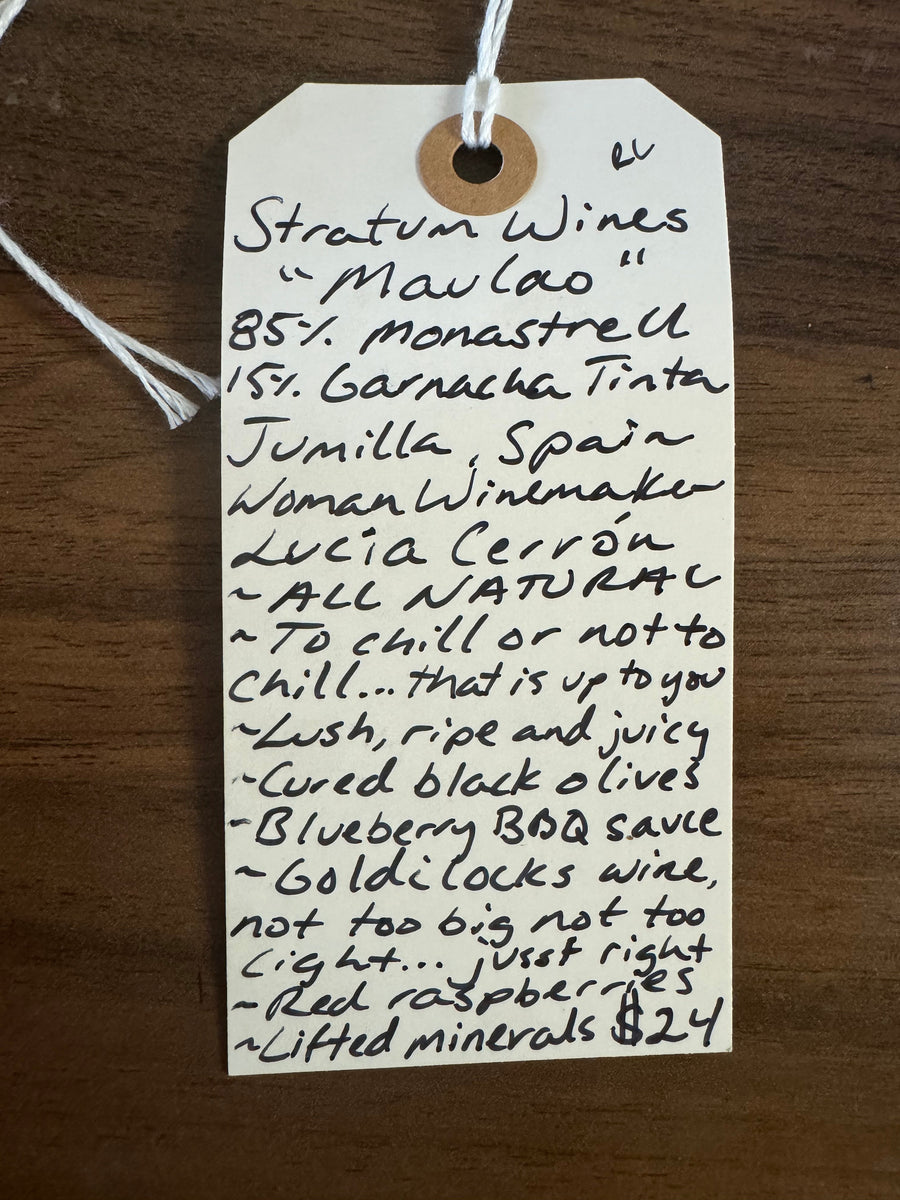 RL
Stratum Wines
"Maulao"
85% Monastrell
15% Garnacha Tinta
Jumilla, Spain
Woman Winemaker
Lucía Cerrón
~ ALL NATURAL
~ To chill or not to
chill... that is up to you
~Lush, ripe and juicy
~Cured black olives
~Blueberry BBQ sauce
~Goldilocks wine,
not too big not too
light... jusst right
~Red raspberries
~Lifted minerals $24